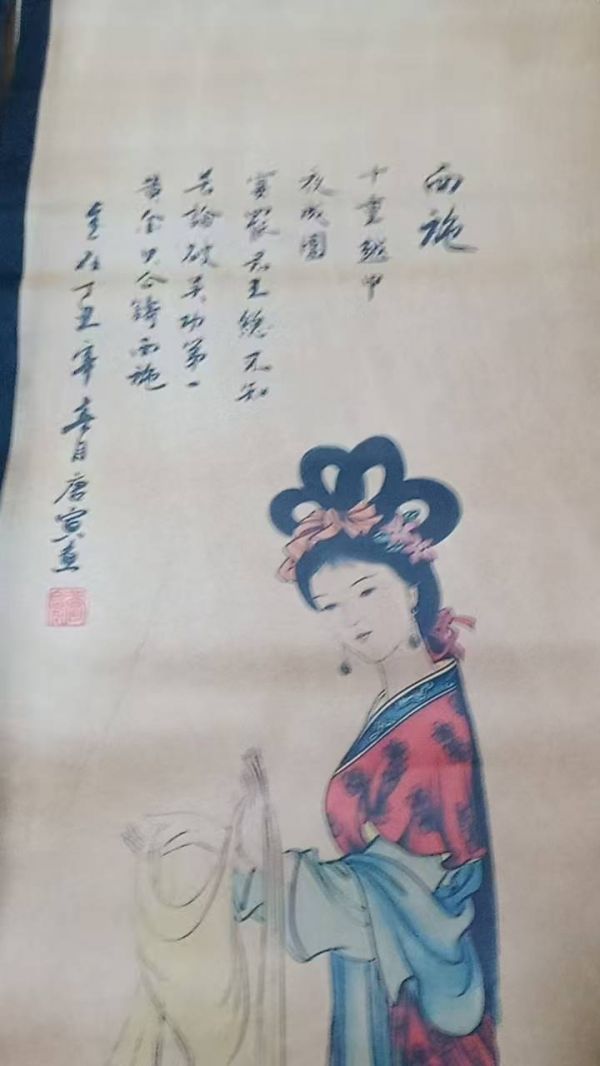 西施
十重越甲
夜成圍
宴罷君王總不知
若論破吴功第一
黄金只合鑄西施
在丁丑年春日唐寅畫